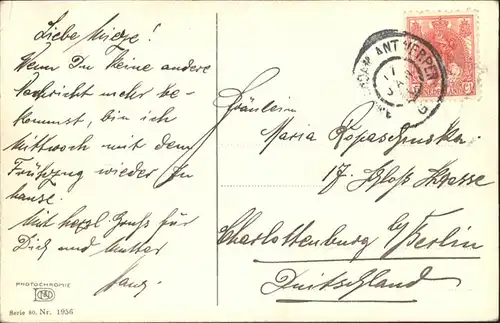 Liebe Mieze!
Wenn Du keine andere
Nachricht mehr be-
kommst, bin ich
Mittwoch mit dem
Frühzug wieder zu
hause.
Mit herzl. Gruß für
Dich und Mutter
Hans
Fräulein
Maria
17. Schloß Strasse
Charlottenburg b/Berlin
Duitschland
ANTWERPEN
PHOTOCHROMIE
Serie 80. Nr. 1956